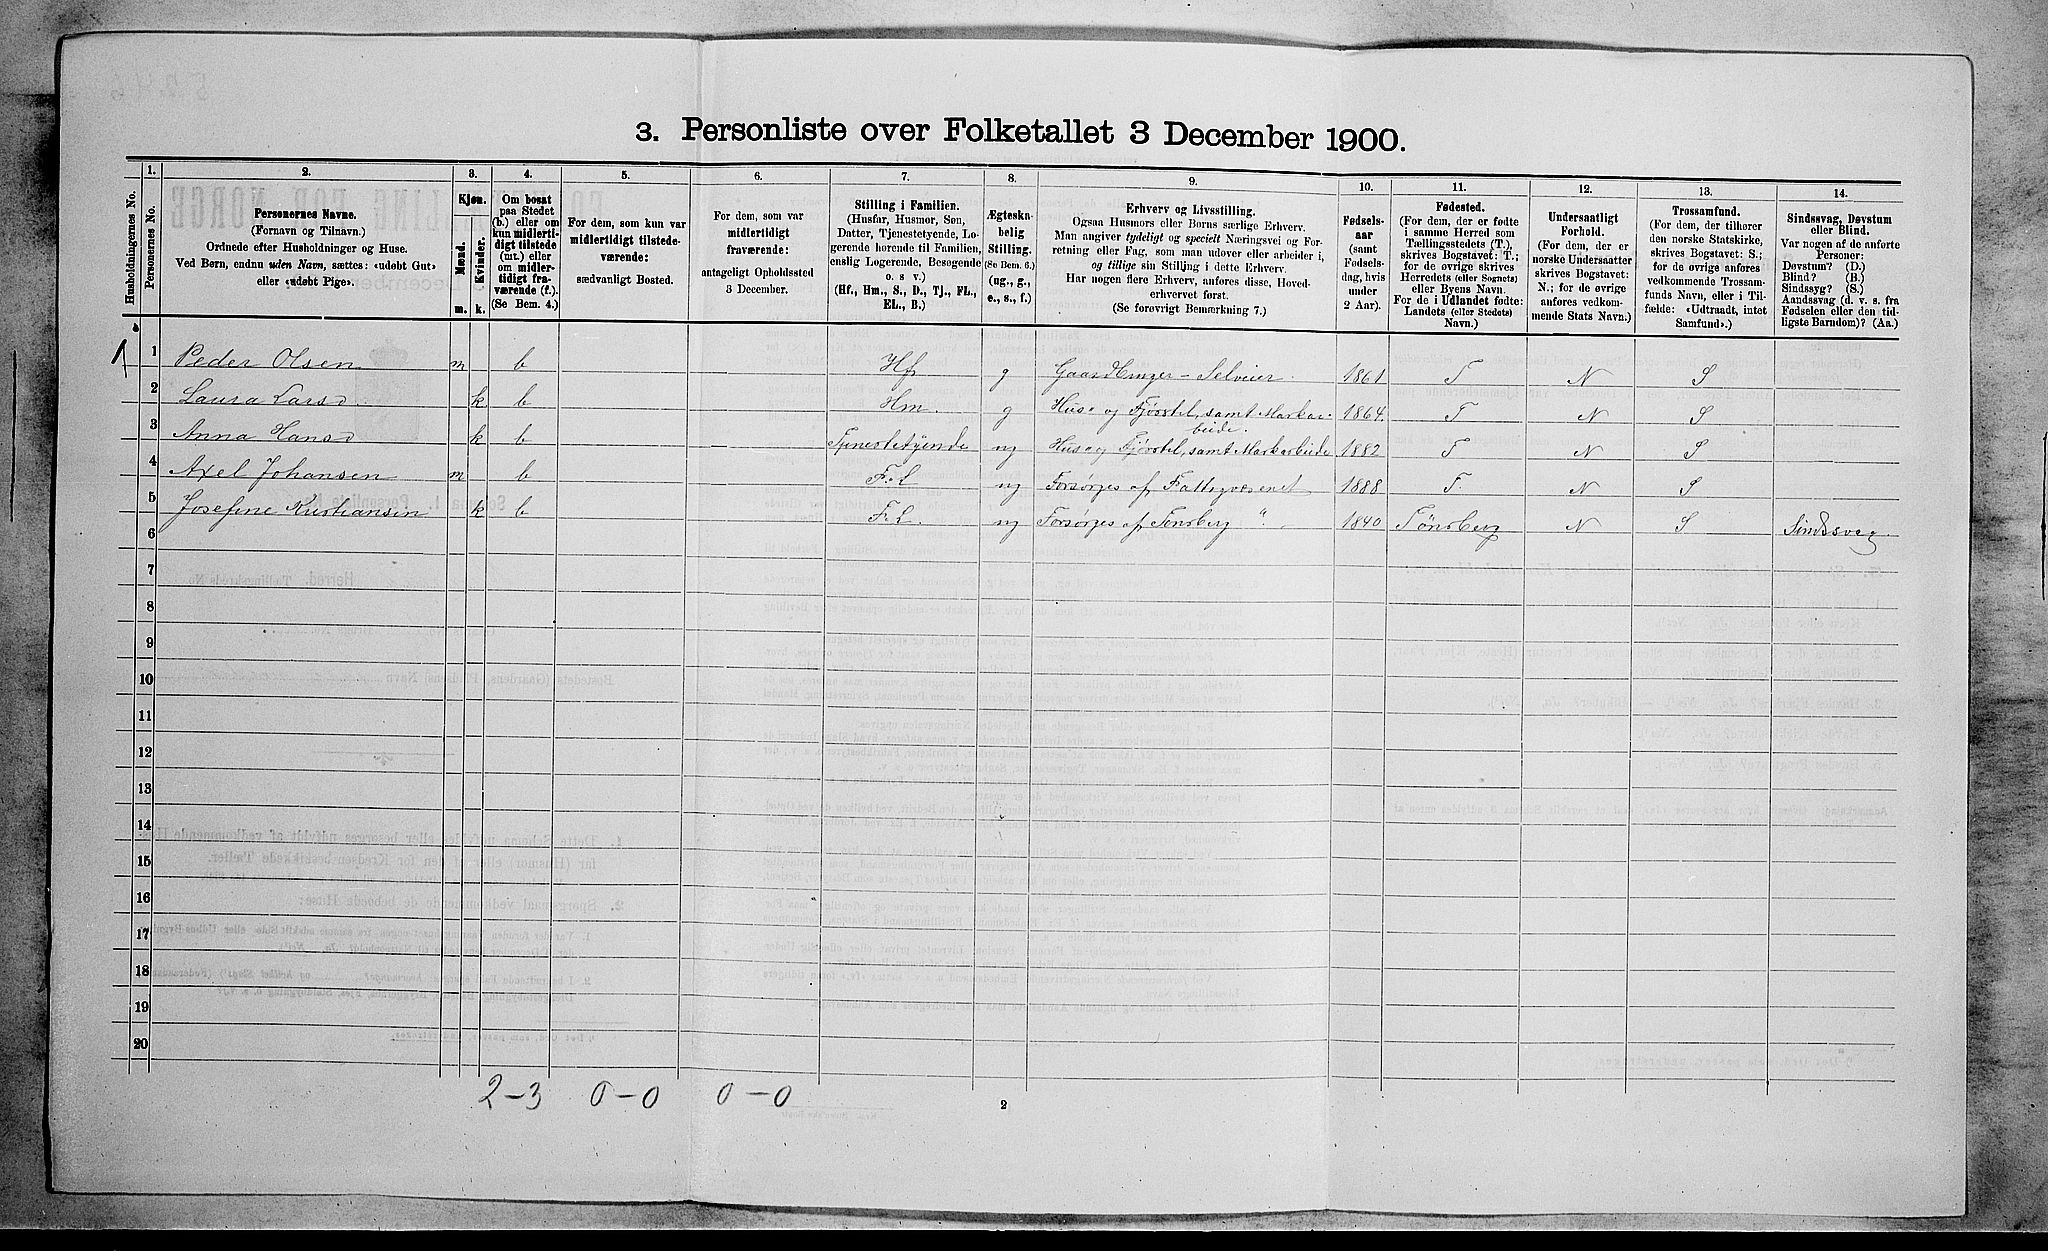 3. Personliste over Folketallet 3 December 1900.
Husholdningernes No.
1.
Personernes No.
2.
Personernes Navne.
(Fornavn og Tilnavn.)
Ordnede efter Husholdninger og Huse.
Ved Børn, endnu uden Navn, sættes: «udøbt Gut»
eller «udøbt Pige».
3.
Kjøn.
Mænd.
Kvinder.
m. k.
4.
Om bosat
paa Stedet
(b.) eller om
kun midlerti-
digt tilstede
(mt.) eller
om midler-
tidigt fra-
værende (f.).
(Se Bem. 4.)
5.
For dem, som kun var
midlertidigt tilstede-
værende:
sædvanligt Bosted.
6.
For dem, som var
midlertidigt
fraværende:
antageligt Opholdssted
3 December.
7.
Stilling i Familien.
(Husfar, Husmor, Søn,
Datter, Tjenestetyende, Lo-
gerende hørende til Familien,
enslig Logerende, Besøgende
o. s v.)
(Hf., Hm., S., D., Tj., FL.,
EL., B.)
8.
Ægteska-
belig
Stilling.
(Se Bem. 6.)
(ug., g.,
e., s., f.)
9.
Erhverv og Livsstilling.
Ogsaa Husmors eller Børns særlige Erhverv.
Man angiver tydeligt og specielt Næringsvei og For-
retning eller Fag, som man udøver eller arbeider i,
og tillige sin Stilling i dette Erhverv.
Har nogen flere Erhverv, anføres disse, Hoved-
erhvervet først.
(Se forøvrigt Bemærkning 7.)
10.
Fødsels-
aar
(samt
Fødsels-
dag, hvis
under
2 Aar).
11.
Fødested.
(For dem, der er fødte
i samme Herred som
Tællingsstedets (T.),
skrives Bogstavet: T.;
for de øvrige skrives
Herredets (eller Sognets)
eller Byens Navn.
For de i Udlandet fødte:
Landets (eller Stedets)
Navn.)
12.
Undersaatligt
Forhold.
(For dem, der er
norske Undersaatter
skrives Bogstavet:
N.; for de øvrige
anføres vedkom-
mende Stats Navn.)
13.
Trossamfund.
(For dem, der tilhører
den norske Statskirke,
skrives Bogstavet: S.;
for de øvrige anføres
vedkommende Trossam-
funds Navn, eller i Til-
fælde: «Udtraadt, intet
Samfund».)
14.
Sindssvag, Døvstum
eller Blind.
Var nogen af de anførte
Personer:
Døvstum? (D.)
Blind? (B.)
Sindssyg? (S.)
Aandssvag (d. v. s. fra
Fødselen eller den tid-
ligste Barndom)? (Aa.)
1 1 Peder Olsen m b Hf g Gaardbruger - Selveier. 1861 T N S
2 Laura Larsd. k b Hm. g Hus- og Fjøsstel, samt Markar- 1864 T N S
beide.
3 Anna Hansd k b Tjenestetyende ug Hus- og Fjøsstel, samt Markarbeide 1882 T N S
4 Axel Johansen m b F.L ug Forsørges af Fattigvæsenet 1888 T. N S
5 Josefine Kristiansen k b F.L. ug Forsørges af Tønsberg " 1840 Tønsberg N S Sindssvag.
6
7
8
9
10
11
12
13
14
15
16
17
18
19
20
2-3 0-0 0-0
2